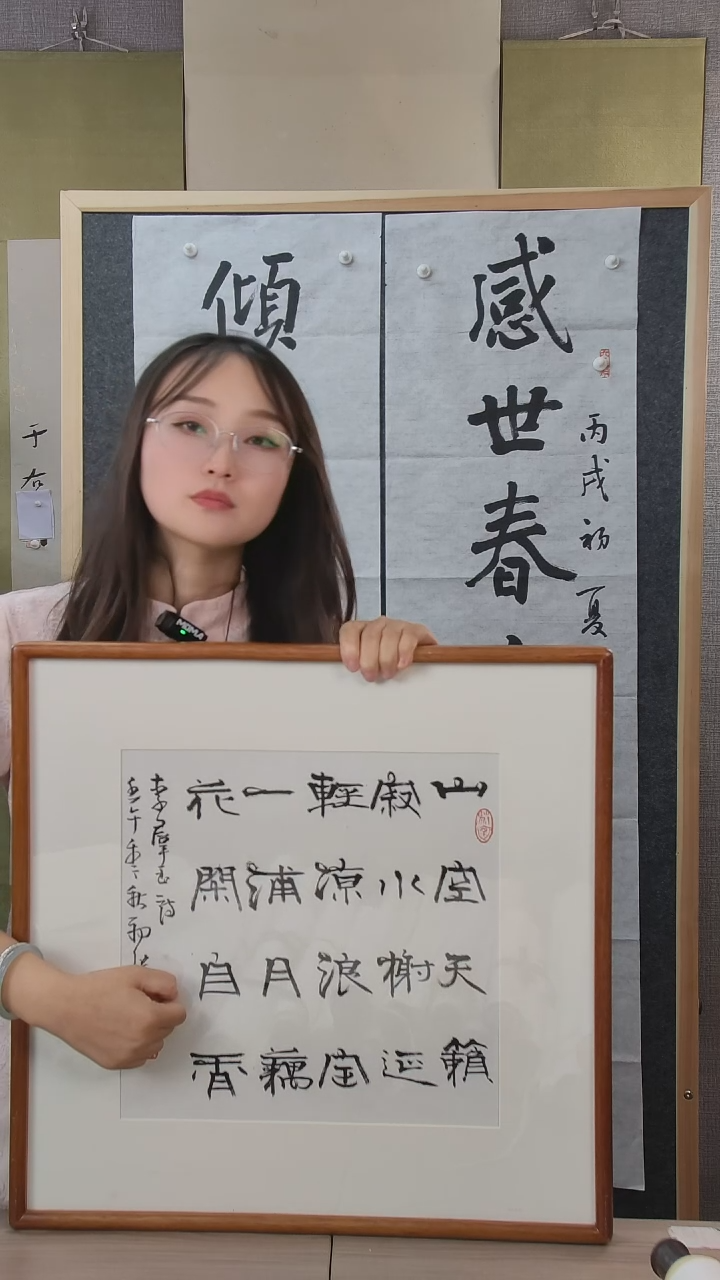 感世春
丙戌初夏
傾
于右
MOMA
山空天籟
寂水榭延
輕涼浪定
一浦月藕
花閑自香
李羣玉詩